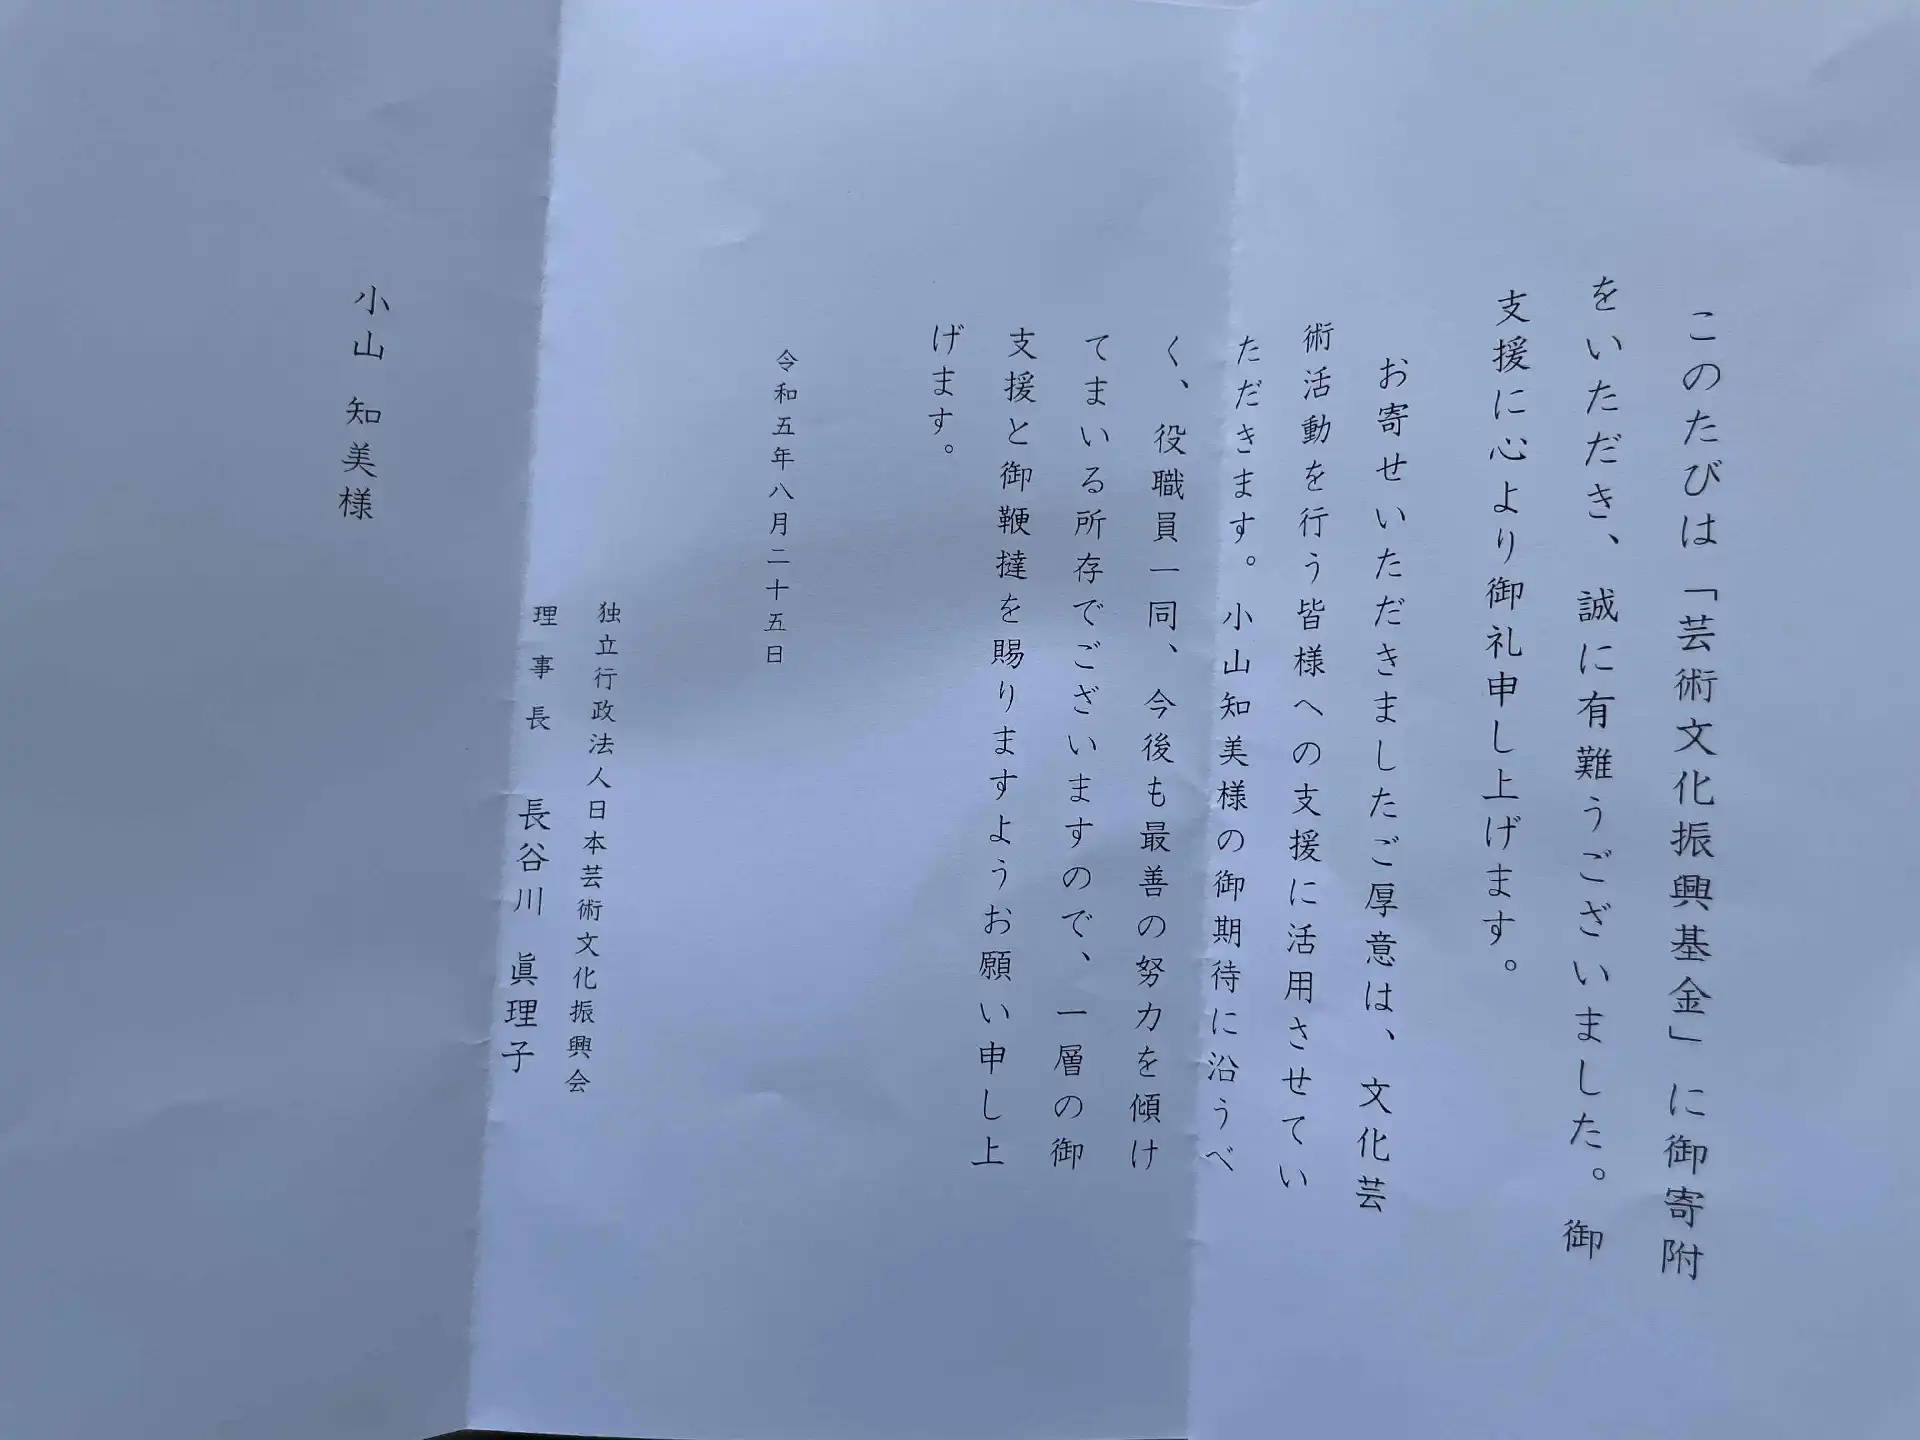 このたびは「芸術文化振興基金」に御寄附
をいただき、誠に有難うございました。御
支援に心より御礼申し上げます。
お寄せいただきましたご厚意は、文化芸
術活動を行う皆様への支援に活用させてい
ただきます。小山知美様の御期待に沿うべ
く、役職員一同、今後も最善の努力を傾け
てまいる所存でございますので、一層の御
支援と御鞭撻を賜りますようお願い申し上
げます。
令和五年八月二十五日
独立行政法人日本芸術文化振興会
理事長 長谷川 眞理子
小山 知美様